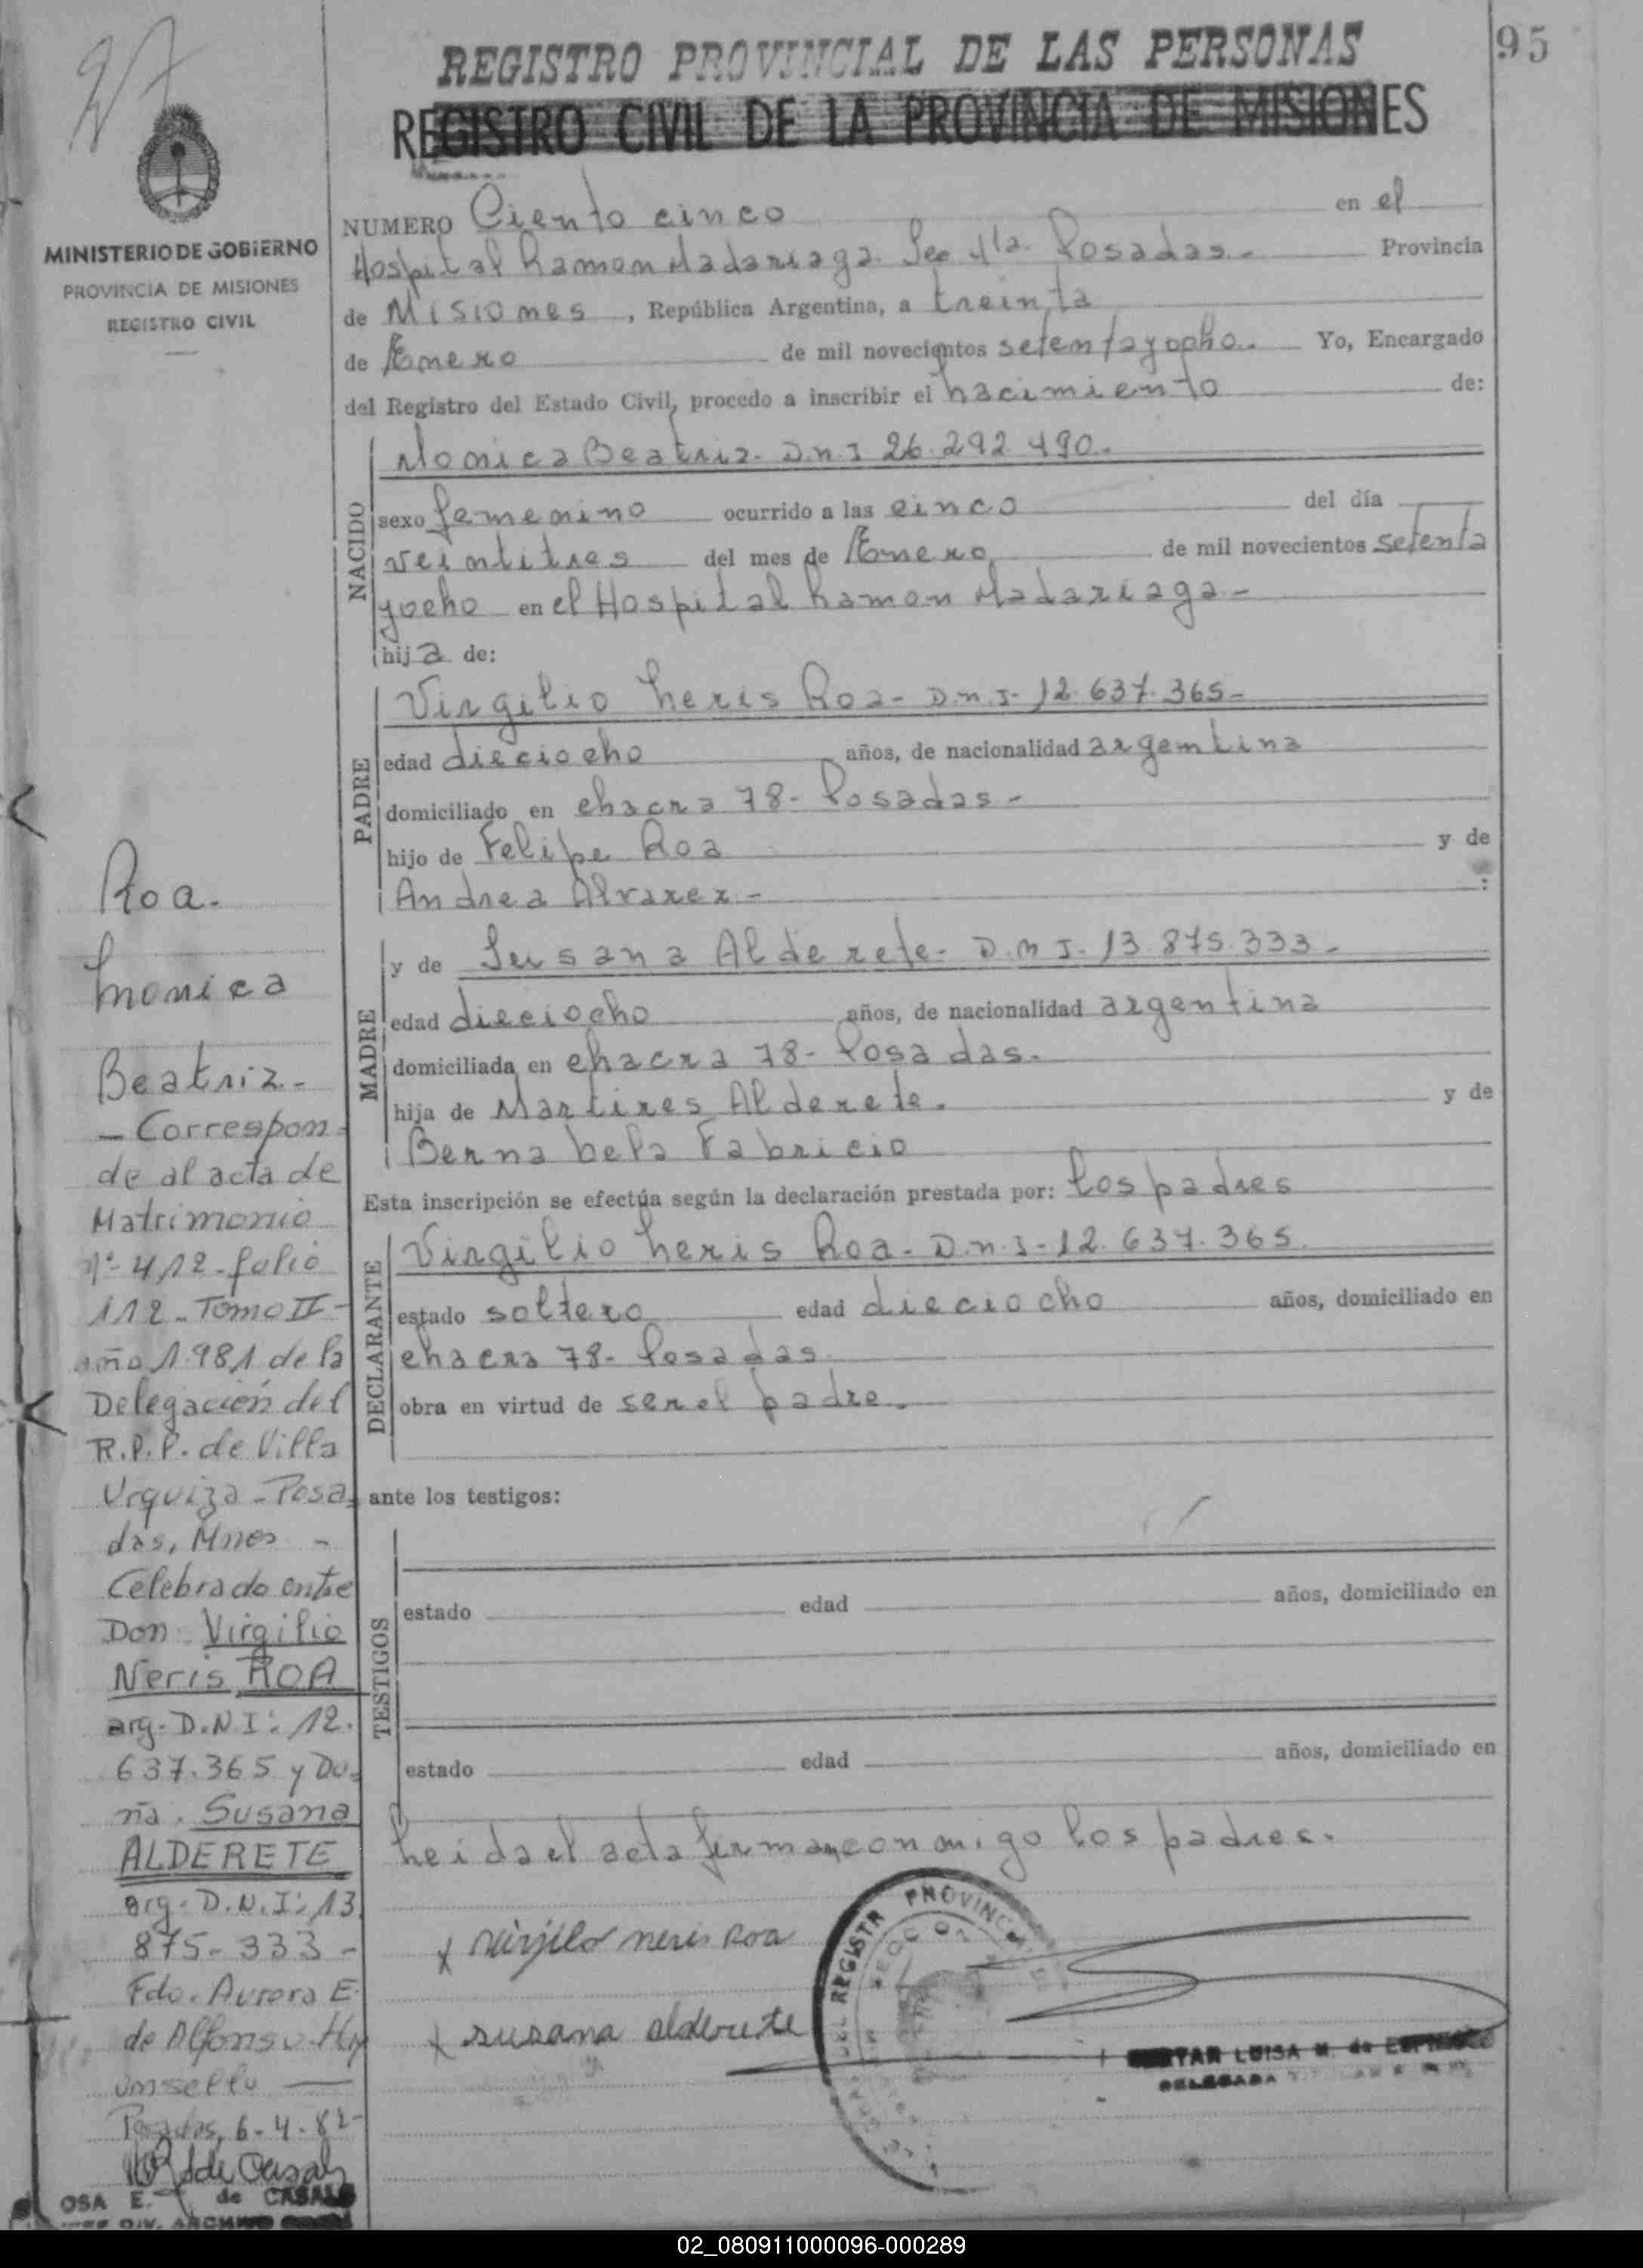 95
REGISTRO PROVINCIAL DE LAS PERSONAS
REGISTRO CIVIL DE LA PROVINCIA DE MISIONES
MINISTERIO DE GOBIERNO
PROVINCIA DE MISIONES
REGISTRO CIVIL
NUMERO Ciento cinco en el
Hospital Ramon Madariaga Sec 4ta. Posadas.- Provincia
de Misiones, República Argentina, a treinta
de Enero de mil novecientos setenta y ocho. Yo, Encargado
del Registro del Estado Civil, procedo a inscribir el nacimiento de:
NACIDO
Monica Beatriz. D.n.I 26.292.490.-
sexo femenino ocurrido a las cinco del día
veintitres del mes de Enero de mil novecientos setenta
y ocho en el Hospital Ramon Madariaga-
hija de:
PADRE
Virgilio Neris Roa- D.n.I- 12.637.365-
edad dieciocho años, de nacionalidad argentina
domiciliado en chacra 78- Posadas-
hijo de Felipe Roa y de
Andrea Alvarez- :
MADRE
y de Susana Alderete- D.n I- 13.875.333-
edad dieciocho años, de nacionalidad argentina
domiciliada en chacra 78- Posadas.
hija de Martires Alderete. y de
Bernabela Fabricio
Esta inscripción se efectúa según la declaración prestada por: los padres
DECLARANTE
Virgilio Neris Roa- D.n.I-12.637.365.
estado soltero edad dieciocho años, domiciliado en
chacra 78- Posadas
obra en virtud de ser el padre.
ante los testigos:
TESTIGOS
estado edad años, domiciliado en
estado edad años, domiciliado en
Leida el acta firman conmigo los padres.
x Virjilo neris Roa
x susana alderete
REGISTR PROVINC
LUISA M. de
DELEGADA
Roa.
Monica
Beatriz-
- Correspon-
de al acta de
Matrimonio
nº- 412- folio
112- Tomo II-
año 1.981 de la
Delegación del
R.P.P. de Villa
Urquiza - Posa-
das, Mnes -
Celebrado entre
Don: Virgilio
Neris ROA
arg- D.N.I: 12.
637.365 y Do-
ña. Susana
ALDERETE
arg- D.N.I: 13
875- 333-
Fdo. Aurora E.
de Alfonso- Hay
un sello
Posadas, 6-4-82-
de Casals
OSA E. de CASALS
DIV. ARCHIVO
02_080911000096-000289